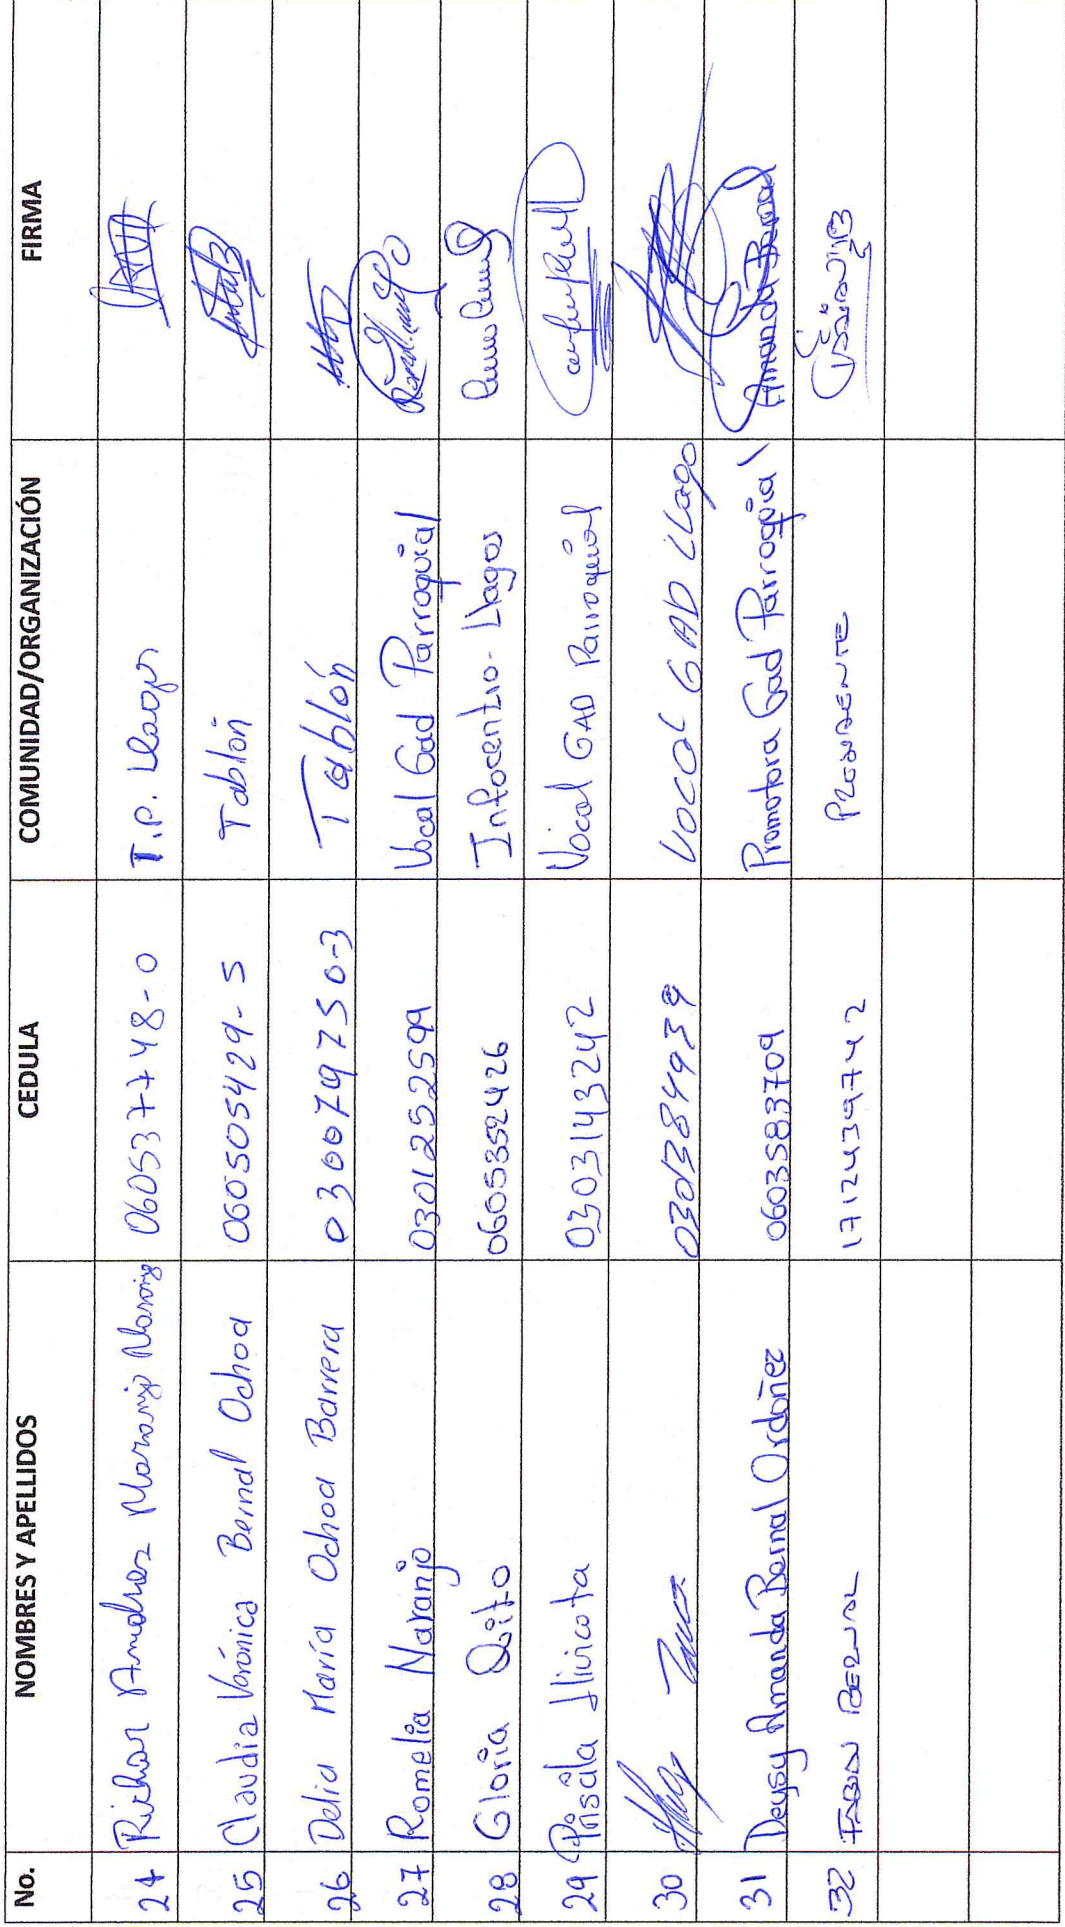 No. NOMBRES Y APELLIDOS CEDULA COMUNIDAD/ORGANIZACIÓN FIRMA
24 Richar Andres Naranjo Naranjo 060537748-0 T.P. Llagos
25 Claudia Verónica Bernal Ochoa 060505429-5 Tablón
26 Delia María Ochoa Barrera 030079750-3 Tablón
27 Romelia Naranjo 0301252599 Vocal Gad Parroquial
28 Gloria Quito 0605352426 Infocentro-Llagos
29 Prisila Llivicota 0303143242 Vocal GAD Parroquial
30 0301384939 Vocal GAD Llagos
31 Deysy Amanda Bernal Ordoñez 0603583709 Promotora Gad Parroquial Amanda Bernal
32 Fabian Bernal 1712439742 Presidente